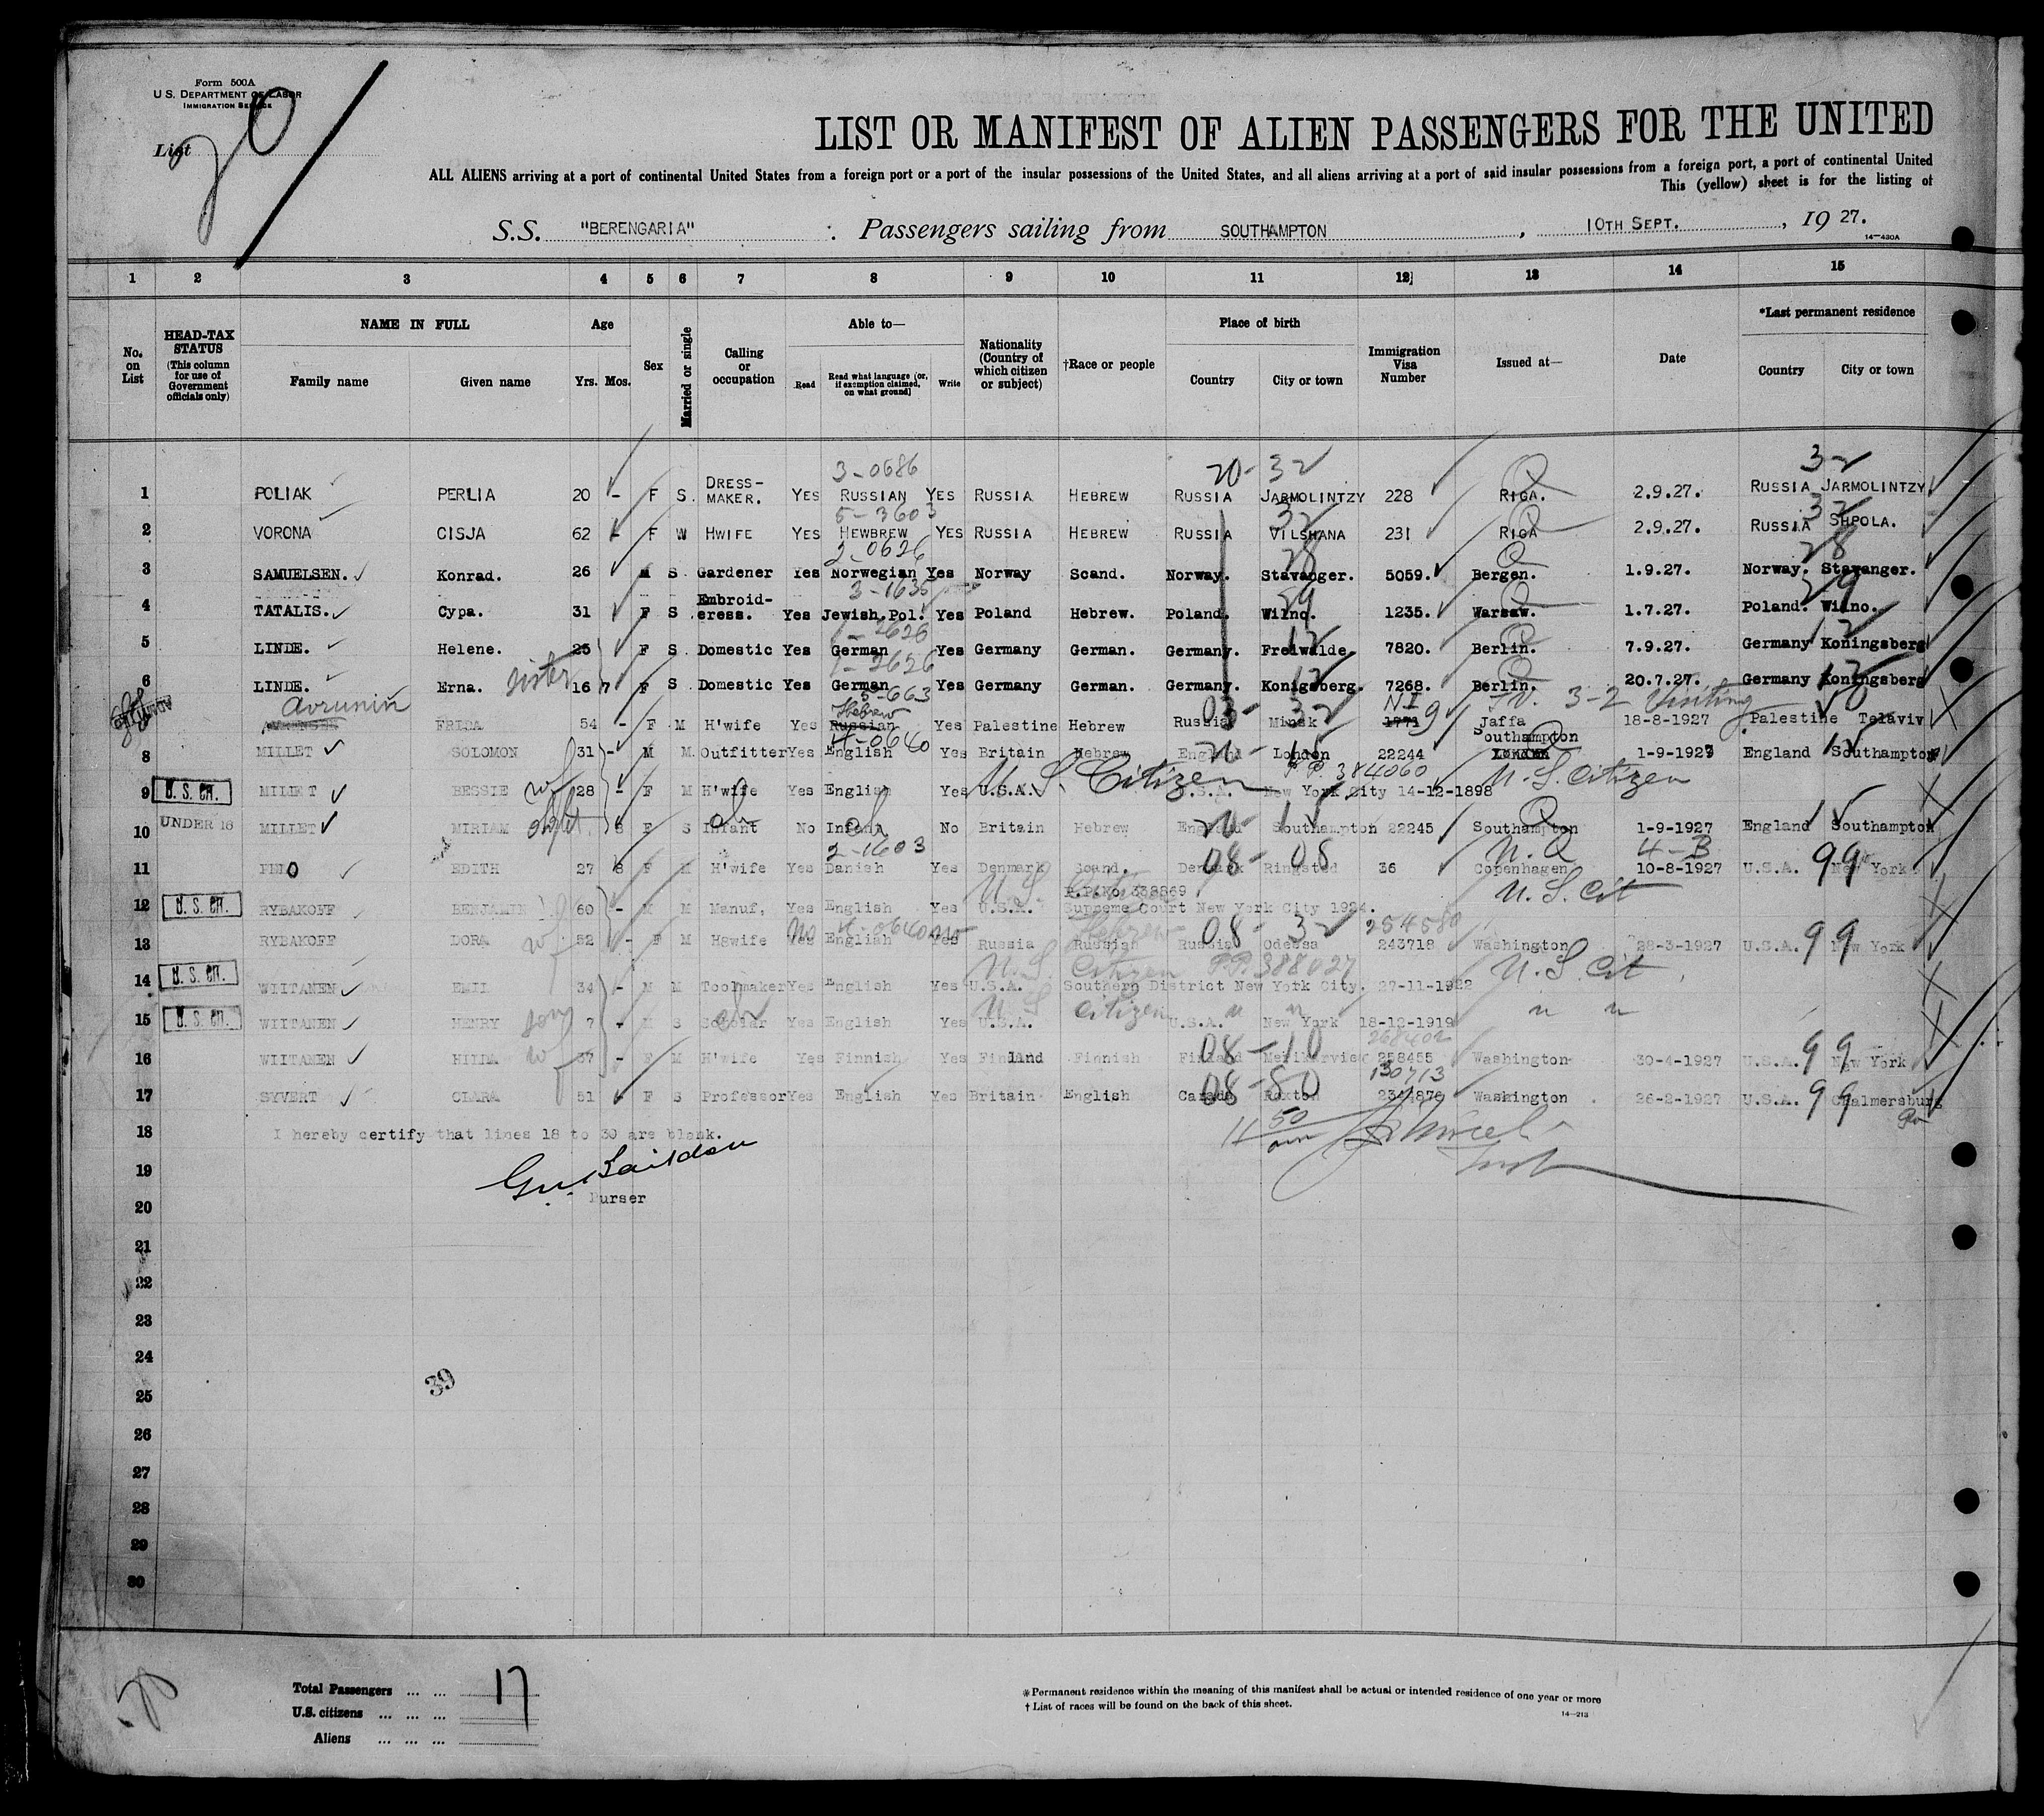 Form 500A
U.S. DEPARTMENT OF LABOR
IMMIGRATION SERVICE
List 20
LIST OR MANIFEST OF ALIEN PASSENGERS FOR THE UNITED
ALL ALIENS arriving at a port of continental United States from a foreign port or a port of the insular possessions of the United States, and all aliens arriving at a port of said insular possessions from a foreign port, a port of continental United
This (yellow) sheet is for the listing of
S.S. "BERENGARIA" : Passengers sailing from SOUTHAMPTON, 10TH SEPT., 19 27.
14—430A
1 2 3 4 5 6 7 8 9 10 11 12 13 14 15
No. on List
HEAD-TAX STATUS (This column for use of Government officials only)
NAME IN FULL
Family name Given name
Age
Yrs. Mos.
Sex
Married or single
Calling or occupation
Able to—
Read Read what language (or, if exemption claimed, on what ground) Write
Nationality (Country of which citizen or subject)
†Race or people
Place of birth
Country City or town
Immigration Visa Number
Issued at—
Date
*Last permanent residence
Country City or town
3-0686 20-32 Q 32
1 POLIAK PERLIA 20 - F S. DRESS-MAKER. YES RUSSIAN YES RUSSIA HEBREW RUSSIA JARMOLINTZY 228 RIGA. 2.9.27. RUSSIA JARMOLINTZY
5-3603 32 Q 32
2 VORONA CISJA 62 - F W HWIFE YES HEWBREW YES RUSSIA HEBREW RUSSIA VILSHANA 231 RIGA 2.9.27. RUSSIA SHPOLA.
2-0626 28 Q 28
3 SAMUELSEN. Konrad. 26 M S Gardener Yes Norwegian Yes Norway Scand. Norway. Stavanger. 5059. Bergen. 1.9.27. Norway. Stavanger.
3-1635 29 Q 29
4 TATALIS. Cypa. 31 F S Embroid-eress. Yes Jewish,Pol. Yes Poland Hebrew. Poland. Wilno. 1235. Warsaw. 1.7.27. Poland. Wilno.
1-2626 12 Q 12
5 LINDE. Helene. 25 F S. Domestic Yes German Yes Germany German. Germany. Freiwalde. 7820. Berlin. 7.9.27. Germany Koningsberg
1-2626 12 Q 12
6 LINDE. Erna. sister 16 7 F S. Domestic Yes German Yes Germany German. Germany. Konigsberg. 7268. Berlin. 20.7.27. Germany Koningsberg
Avrunin 5-663 Hebrew 03-32 NI 9 3-2 Visiting
FRIDA 54 - F M H'wife Yes Russian Yes Palestine Hebrew Russia Minsk 1971 Jaffa 18-8-1927 Palestine Telaviv
4-0640 Southampton
8 MILLET SOLOMON 31 - M M. Outfitter Yes English Yes Britain Hebrew England London 22244 London 1-9-1927 England Southampton
U.S. Citizen P.P. 384060 U.S. Citizen
9 U. S. CIT. MILLET BESSIE wf 28 - F M H'wife Yes English Yes U.S.A. U.S.A. New York City 14-12-1898
UNDER 16
10 MILLET MIRIAM dght. 8 F S Infant No Infant No Britain Hebrew England Southampton 22245 Southampton 1-9-1927 England Southampton
2-1603 08-08 N.Q 4-B 99
11 EDITH 27 8 F M H'wife Yes Danish Yes Denmark Scand. Denmark Ringsted 36 Copenhagen 10-8-1927 U.S.A. New York
U.S. Citizen P.P.No.338869 U.S. Cit
12 U. S. CIT. RYBAKOFF BENJAMIN 60 - M M Manuf. Yes English Yes U.S.A. Supreme Court New York City 1924.
No 4-0640 no Hebrew 08-32 254580 99
13 RYBAKOFF DORA wf 52 - F M Hswife Yes English Yes Russia Russian Russia Odessa 243718 Washington 28-3-1927 U.S.A. New York
U.S. Citizen P.P. 388027 U.S. Cit
14 U. S. CIT. WIITANEN EMIL 34 - M M Toolmaker Yes English Yes U.S.A. Southern District New York City. 27-11-1922
U S Citizen " " " "
15 U. S. CIT. WIITANEN HENRY son 7 - M S Scholar Yes English Yes U.S.A. U.S.A. New York 18-12-1919
08-10 268402 99
16 WIITANEN HILDA wf 37 - F M H'wife Yes Finnish Yes Finland Finnish Finland 258455 Washington 30-4-1927 U.S.A. New York
08-50 130713 99
17 SYVERT CLARA 51 F S Professor Yes English Yes Britain English Canada Roxton Washington 26-2-1927 U.S.A. Chalmersburg Pa
18 I hereby certify that lines 18 to 30 are blank.
11 50 am
19
20 Purser
21
22
23
24
39
25
26
27
28
29
30
Total Passengers ... ... 17
U.S. citizens ... ... ...
Aliens ... ... ...
*Permanent residence within the meaning of this manifest shall be actual or intended residence of one year or more
†List of races will be found on the back of this sheet.
14—213